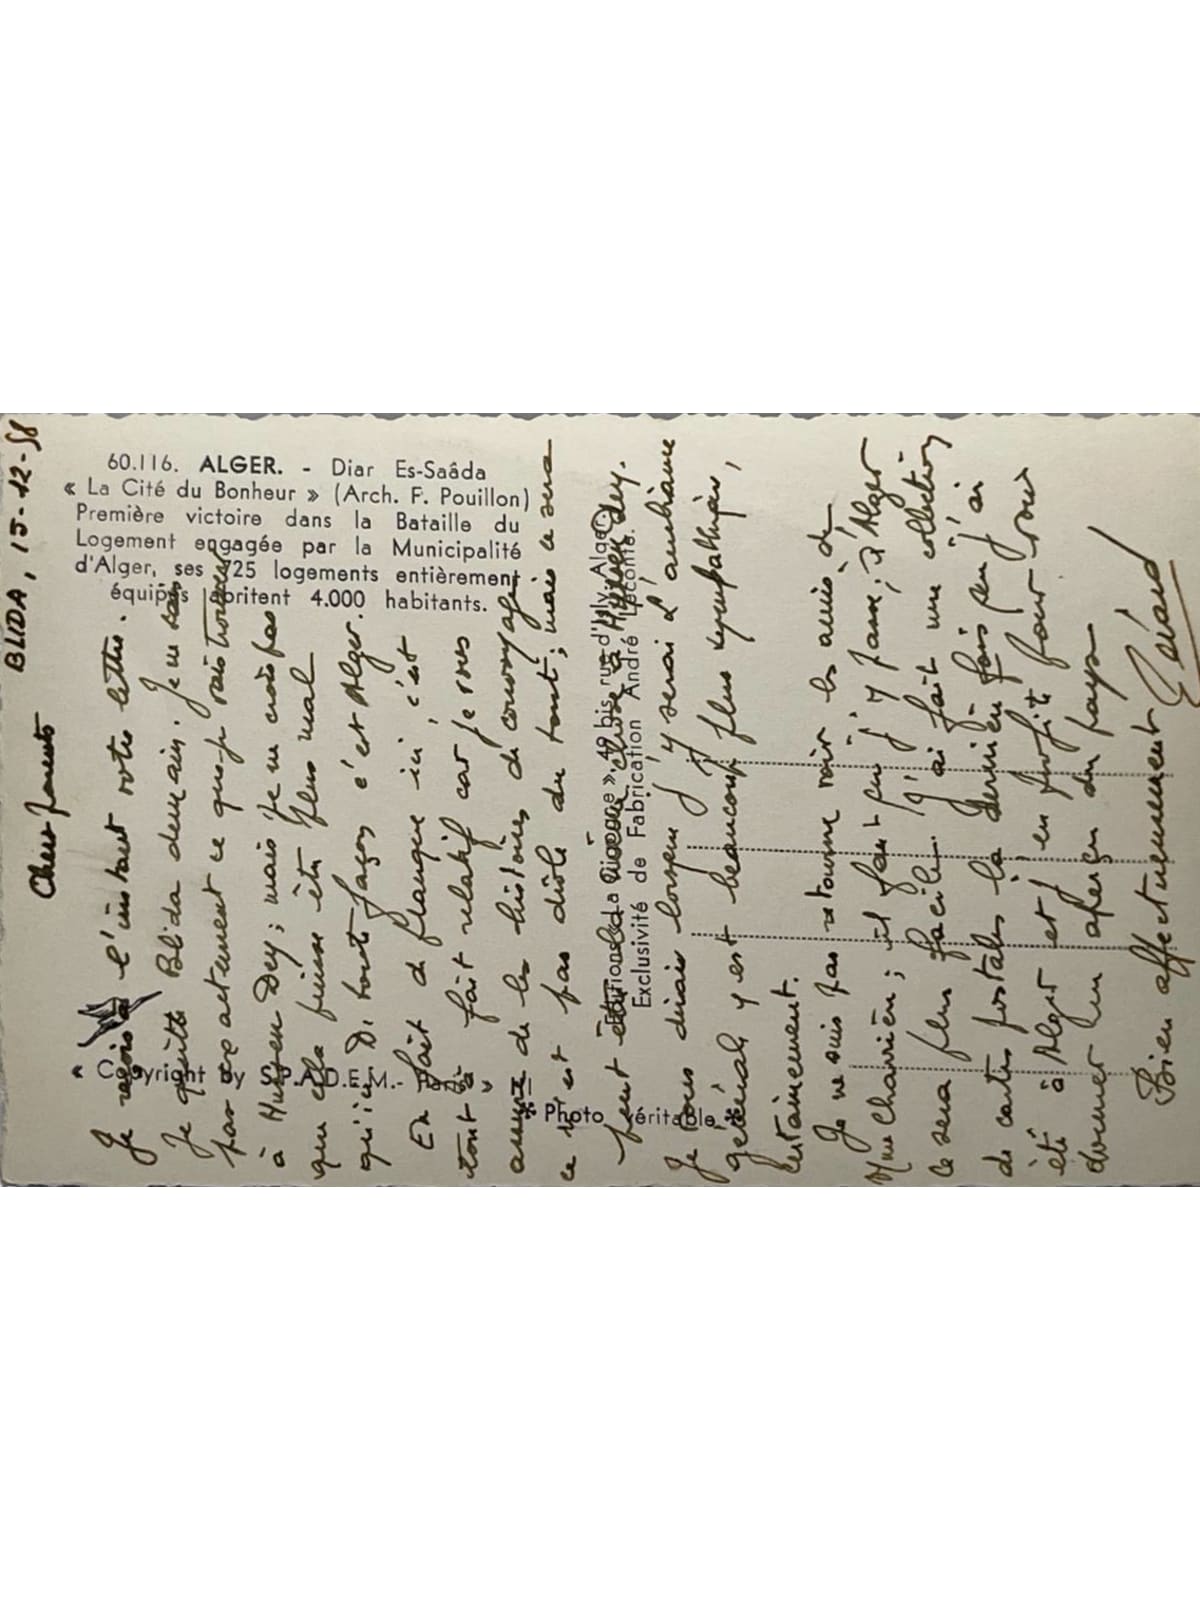 60.116. ALGER. - Diar Es-Saâda
« La Cité du Bonheur » (Arch. F. Pouillon)
Première victoire dans la Bataille du
Logement engagée par la Municipalité
d'Alger, ses 725 logements entièrement
équipés abritent 4.000 habitants.
« Copyright by S.P.A.D.E.M.-
* Photo véritable *
Editions « La Cigogne » 49 bis rue d'Isly. Alger
Exclusivité de Fabrication André Leconte.
BLIDA, 15-12-58
Chers parents
Je reçois à l'instant votre lettre.
Je quitte Blida demain. Je ne sais
pas exactement ce que je vais trouver
à Hussen Dey; mais je ne crois pas
que cela puisse être plus mal
qu'ici. De toute façons c'est Alger.
En fait de planque ici, c'est
tout à fait relatif car je vous
assure de les histoires de convoyage
ce n'est pas drôle du tout; mais ce sera
peut être la même chose à Hussen Dey.
Je vous dirais lorsque j'y serai. L'ambiance
générale y est beaucoup plus sympathique,
certainement.
Je ne suis pas retourné voir les amis de
Mme Charrière; il faut que j'y passe; d'Alger
ce sera plus facile. J'ai fait une collection
de cartes postales la dernière fois que j'ai
été à Alger et j'en profite pour vous
donner un aperçu du pays.
Bien affectueusement
Gérard